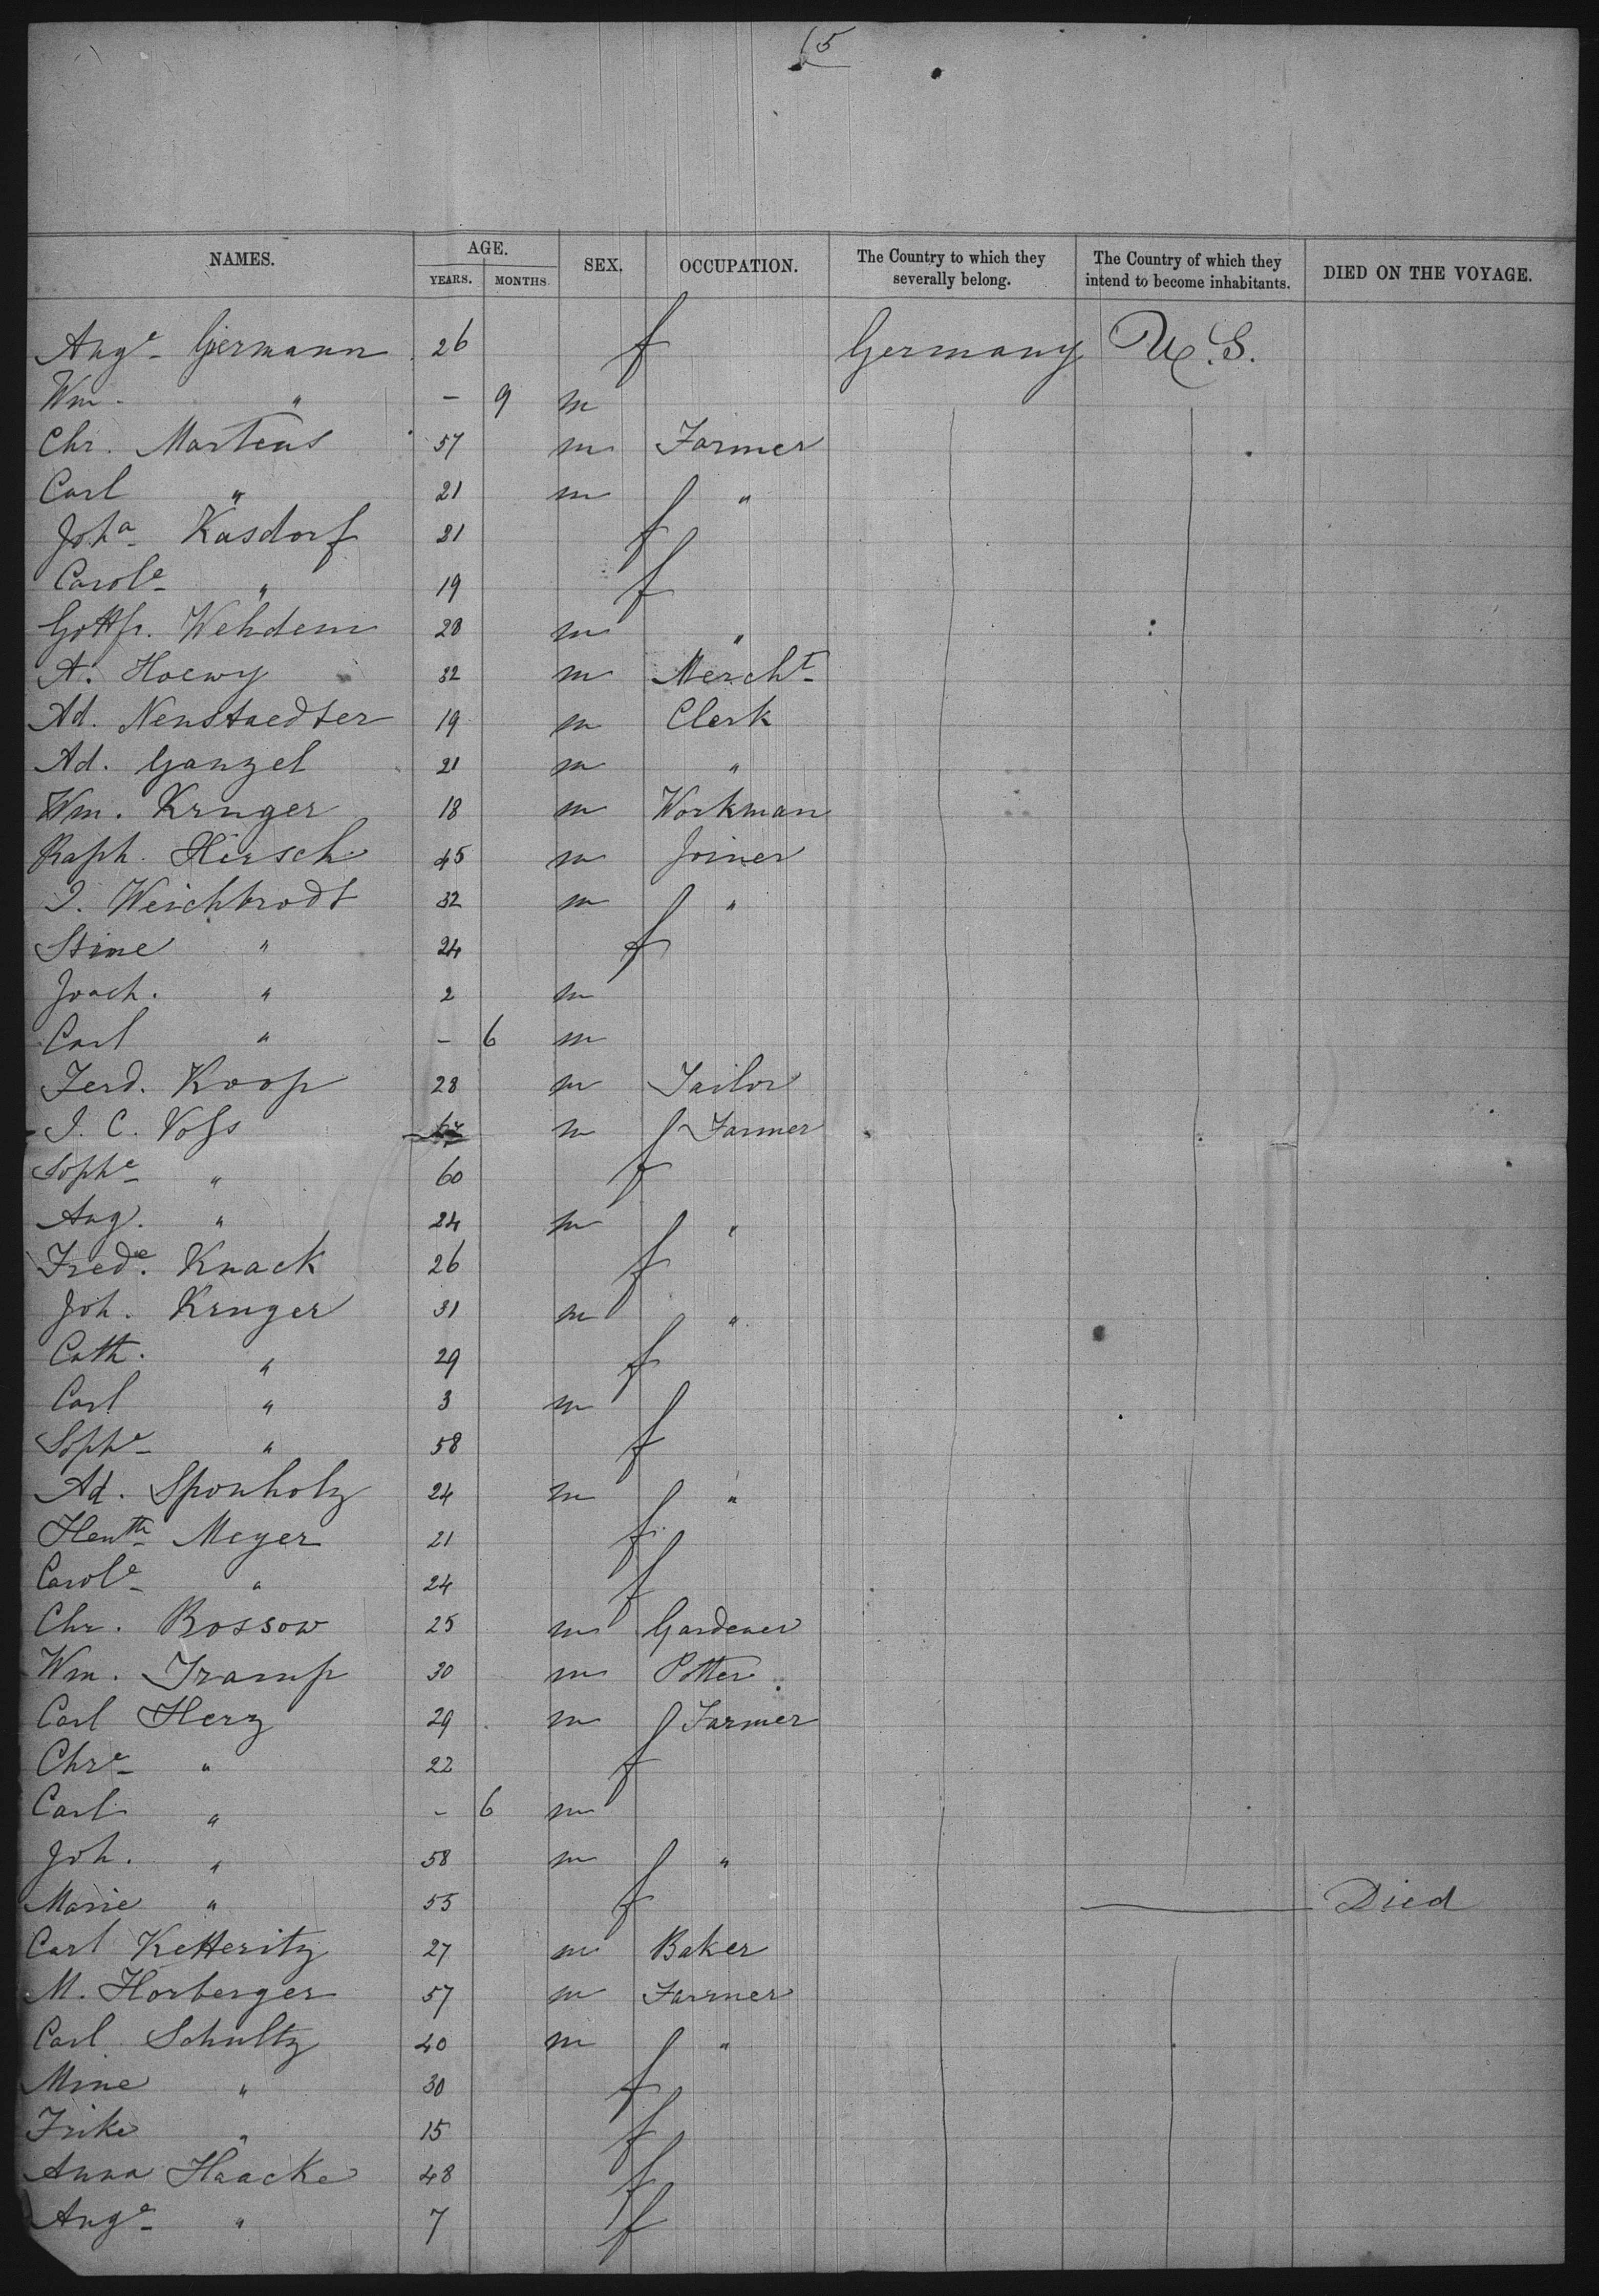 15
NAMES. AGE. YEARS. MONTHS. SEX. OCCUPATION. The Country to which they severally belong. The Country of which they intend to become inhabitants. DIED ON THE VOYAGE.
Auge Germann 26 f Germany U.S.
Wm. " - 9 m
Chr. Martens 57 m Farmer
Carl " 21 m "
Joha Kasdorf 21 f
Carole " 19 f
Gottfr. Wehdem 28 m "
A. Hoewy 32 m Mercht
Ad. Neustaedter 19 m Clerk
Ad. Ganzel 21 m "
Wm. Kruger 18 m Workman
Raph. Hirsch 45 m Joiner
J. Weichbrodt 32 m "
Stine " 24 f
Joach. " 2 m
Carl " - 6 m
Ferd. Koop 28 m Tailor
J. C. Voss m Farmer
Sophe " 60 f
Aug. " 24 m "
Frede. Knack 26 f
Joh. Kruger 31 m "
Cath. " 29 f
Carl " 3 m
Sophe " 58 f
Ad. Sponholz 24 m "
Hentte Meyer 21 f
Carole " 24 f
Chr. Bossow 25 m Gardener
Wm. Tramp 30 m Potter
Carl Herz 29 m Farmer
Chre " 22 f
Carl " - 6 m
Joh. " 58 m "
Marie " 55 f Died
Carl Ketteritz 27 m Baker
M. Horberger 57 m Farmer
Carl Schultz 40 m "
Mine " 30 f
Frike " 15 f
Anna Haacke 48 f
Auge " 7 f